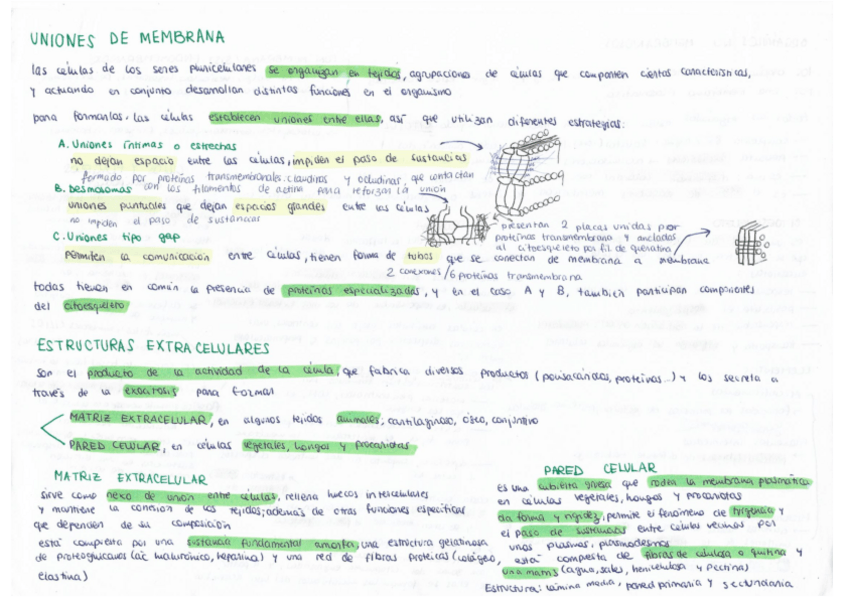 UNIONES DE MEMBRANA
las células de los seres pluricelulares se organizan en tejidos, agrupaciones de células que comparten ciertas características,
y actuando en conjunto desarrollan distintas funciones en el organismo
para formarlos, las células establecen uniones entre ellas, así que utilizan diferentes estrategias:
A. Uniones íntimas o estrechas
no dejan espacio entre las células, impiden el paso de sustancias
formado por proteínas transmembranales: claudinas y ocludinas, que contactan
con los filamentos de actina para reforzar la unión
B. Desmosomas
uniones puntuales que dejan espacios grandes entre las células
no impiden el paso de sustancias
presentan 2 placas unidas por
proteínas transmembrana y ancladas
al citoesqueleto por fil de queratina
C. Uniones tipo gap
Permiten la comunicación entre células, tienen forma de tubos que se conectan de membrana a membrana
2 conexones / 6 proteínas transmembrana
todas tienen en común la presencia de proteínas especializadas, y en el caso A y B, también participan componentes
del citoesqueleto
ESTRUCTURAS EXTRACELULARES
son el producto de la actividad de la célula que fabrica diversos productos (polisacáridos, proteínas...) y los secreta a
través de la exocitosis para formar
MATRIZ EXTRACELULAR, en algunos tejidos animales, cartilaginoso, óseo, conjuntivo
PARED CELULAR, en células vegetales, hongos y procariotas
MATRIZ EXTRACELULAR
sirve como nexo de unión entre células, rellena huecos intercelulares
y mantiene la conexión de los tejidos; además de otras funciones específicas
que dependen de su composición
está compuesta por una sustancia fundamental amorfa, una estructura gelatinosa
de proteoglucanos (ác hialurónico, heparina) y una red de fibras proteicas (colágeno,
elastina)
PARED CELULAR
es una cubierta gruesa que rodea la membrana plasmática
en células vegetales, hongos y procariotas
da forma y rigidez, permite el fenómeno de turgencia y
el paso de sustancias entre células vecinas por
unos plasmodesmos
está compuesta de fibras de celulosa o quitina y
una matriz (agua, sales, hemicelulosa y pectina)
Estructura: lámina media, pared primaria y secundaria